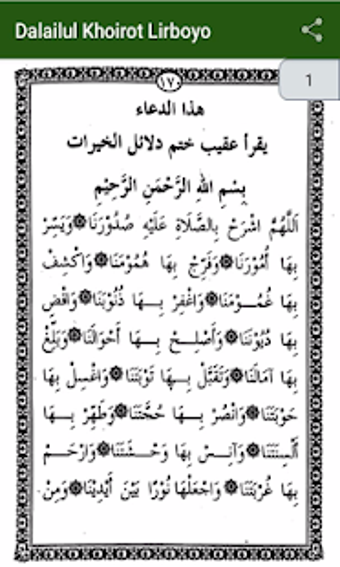 Dalailul Khoirot Lirboyo
1
١٧
هذا الدعاء
يقرأ عقيب ختم دلائل الخيرات
بِسْمِ اللهِ الرَّحْمَنِ الرَّحِيْمِ
اَللَّهُمَّ اشْرَحْ بِالصَّلَاةِ عَلَيْهِ صُدُوْرَنَا۞وَيَسِّرْ
بِهَا أُمُوْرَنَا۞وَفَرِّجْ بِهَا هُمُوْمَنَا۞وَاكْشِفْ
بِهَا غُمُوْمَنَا۞وَاغْفِرْ بِهَا ذُنُوْبَنَا۞وَاقْضِ
بِهَا دُيُوْنَنَا۞وَأَصْلِحْ بِهَا أَحْوَالَنَا۞وَبَلِّغْ
بِهَا آمَالَنَا۞وَتَقَبَّلْ بِهَا تَوْبَتَنَا۞وَاغْسِلْ بِهَا
حَوْبَتَنَا۞وَانْصُرْ بِهَا حُجَّتَنَا۞وَطَهِّرْ بِهَا
أَلْسِنَتَنَا۞وَآنِسْ بِهَا وَحْشَتَنَا۞وَارْحَمْ
بِهَا غُرْبَتَنَا۞وَاجْعَلْهَا نُوْرًا بَيْنَ أَيْدِيْنَا۞وَمِنْ